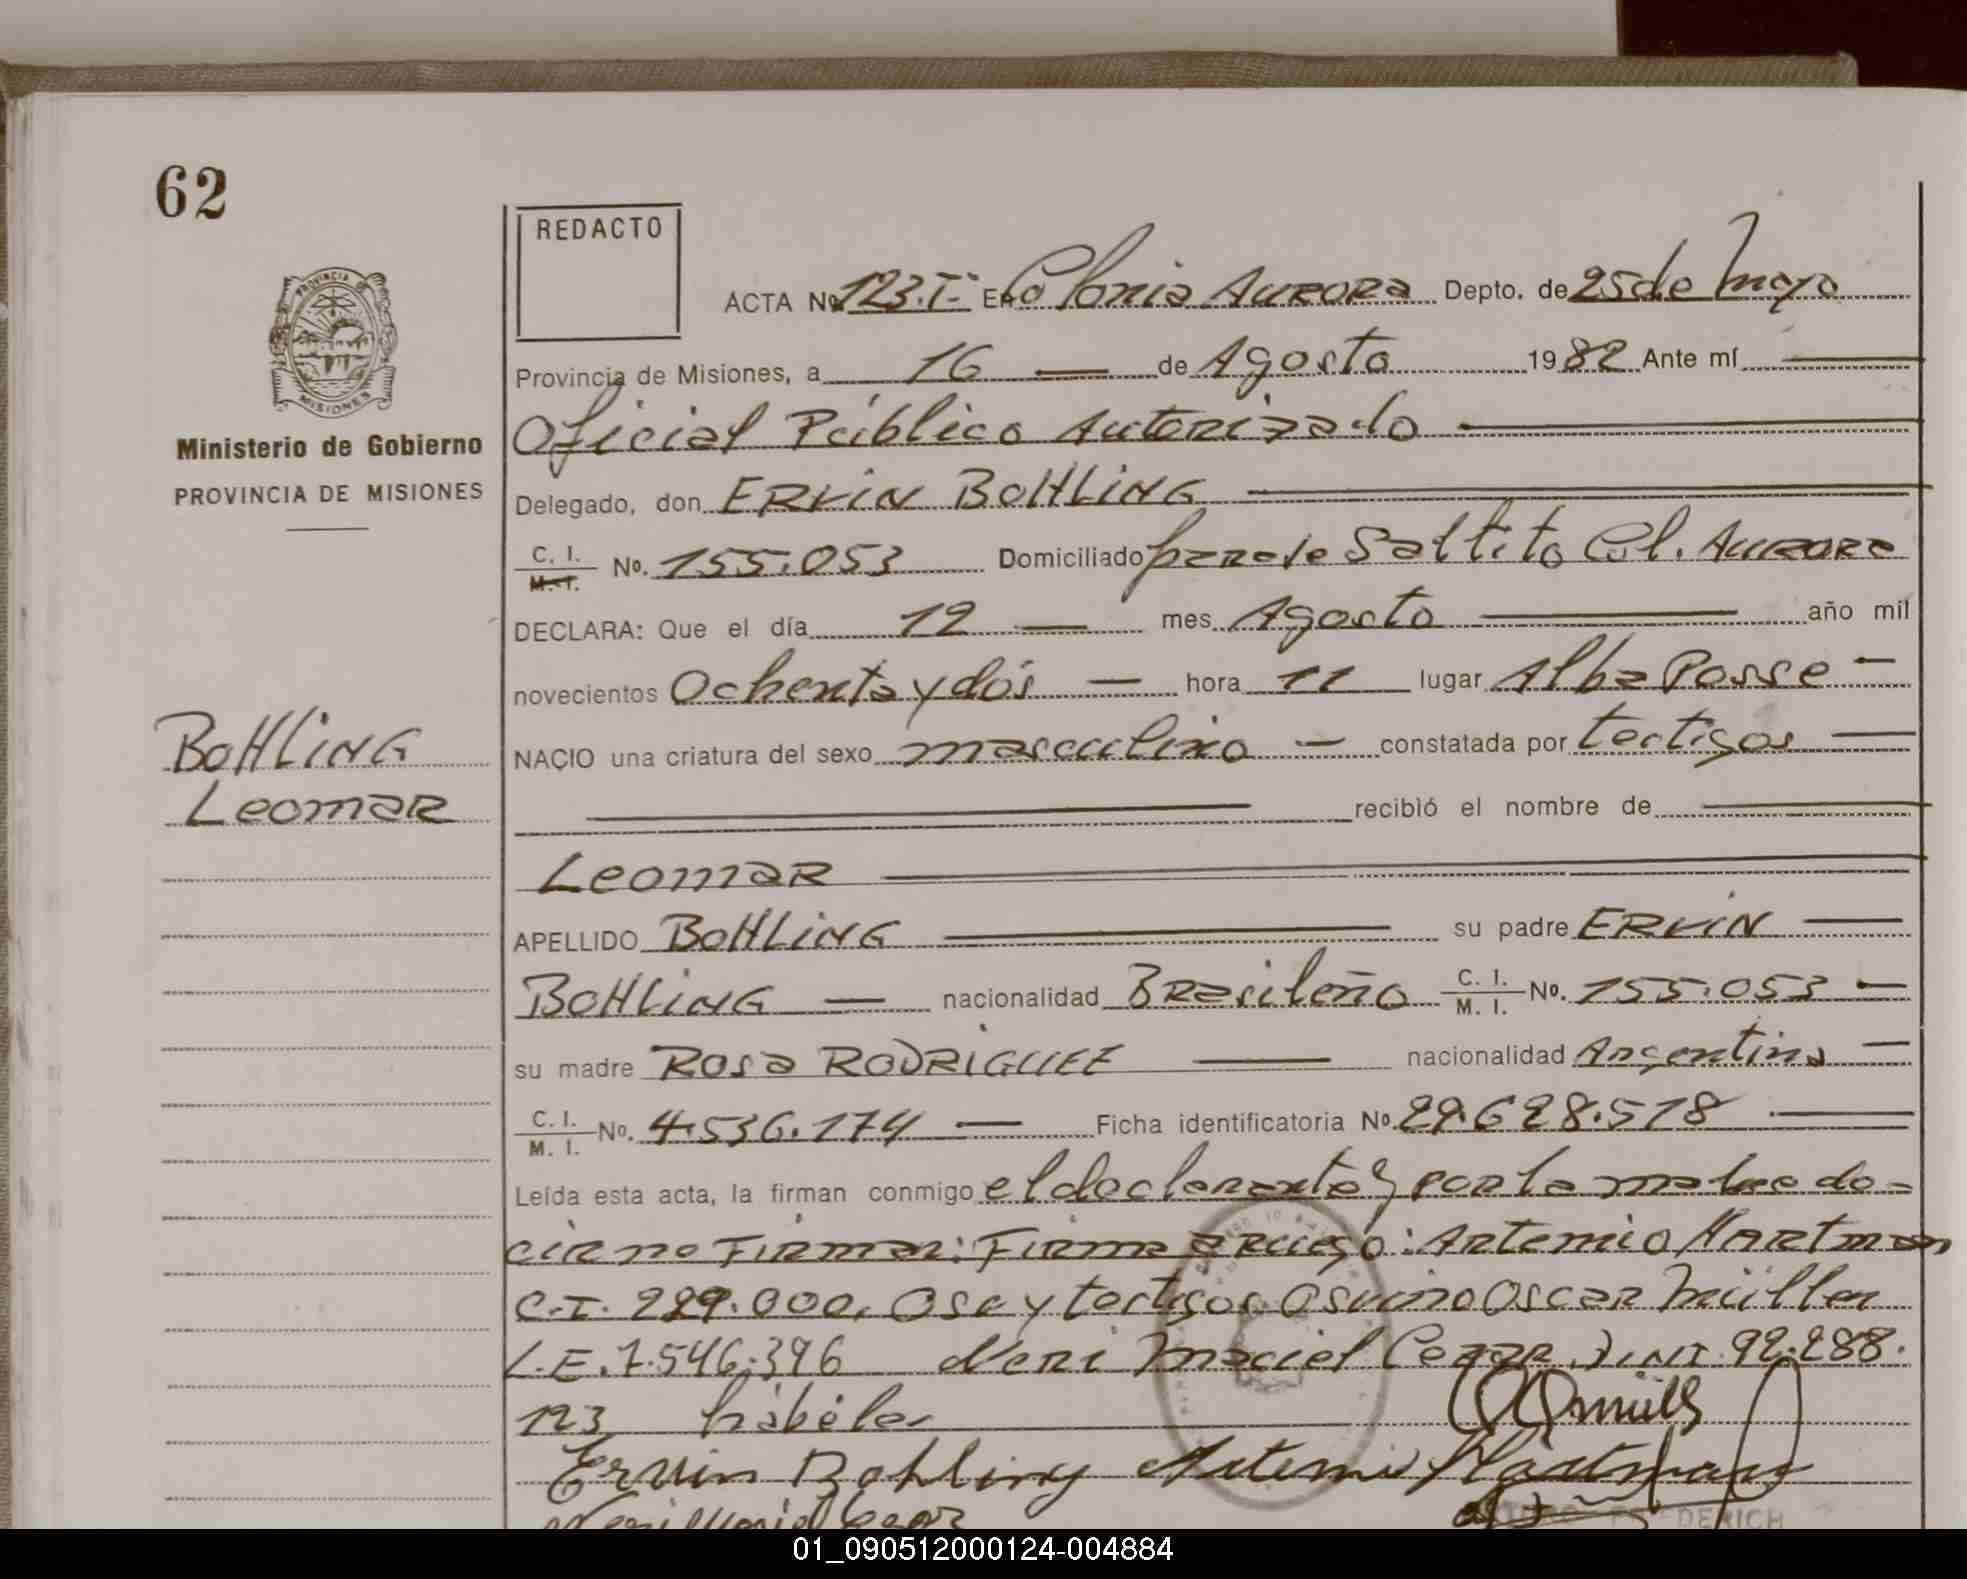 62
REDACTO
ACTA Nº 123.T.- En Colonia AURORA Depto. de 25 de Mayo
Provincia de Misiones, a 16 — de Agosto 1982 Ante mí
Ministerio de Gobierno
PROVINCIA DE MISIONES
Oficial Público Autorizado
Delegado, don ERVIN BOHLING
C. I. M. I. Nº. 155.053 Domiciliado paraje Saltito Col. AURORA
DECLARA: Que el día 12 — mes Agosto año mil
novecientos Ochenta y dós — hora 11 lugar Alba Posse —
BOHLING
Leomar
NACIO una criatura del sexo masculino — constatada por testigos
recibió el nombre de
Leomar
APELLIDO BOHLING su padre ERVIN
BOHLING — nacionalidad Brasileño C. I. M. I. Nº. 155.053 —
su madre Rosa RODRIGUEZ nacionalidad Argentina —
C. I. M. I. Nº. 4.536.174 — Ficha identificatoria Nº 29.628.518
Leída esta acta, la firman conmigo el declarante y por la madre de-
cir no Firmar: Firma a ruego: Artemio Hartman
C.I. 229.000, Ose y testigos Osvino Oscar Müller
L.E. 7.546.396 Neri Maciel Cezar DINI 92.288.
123 hábiles
Ervin Bohling Artemio Hartman
01_090512000124-004884